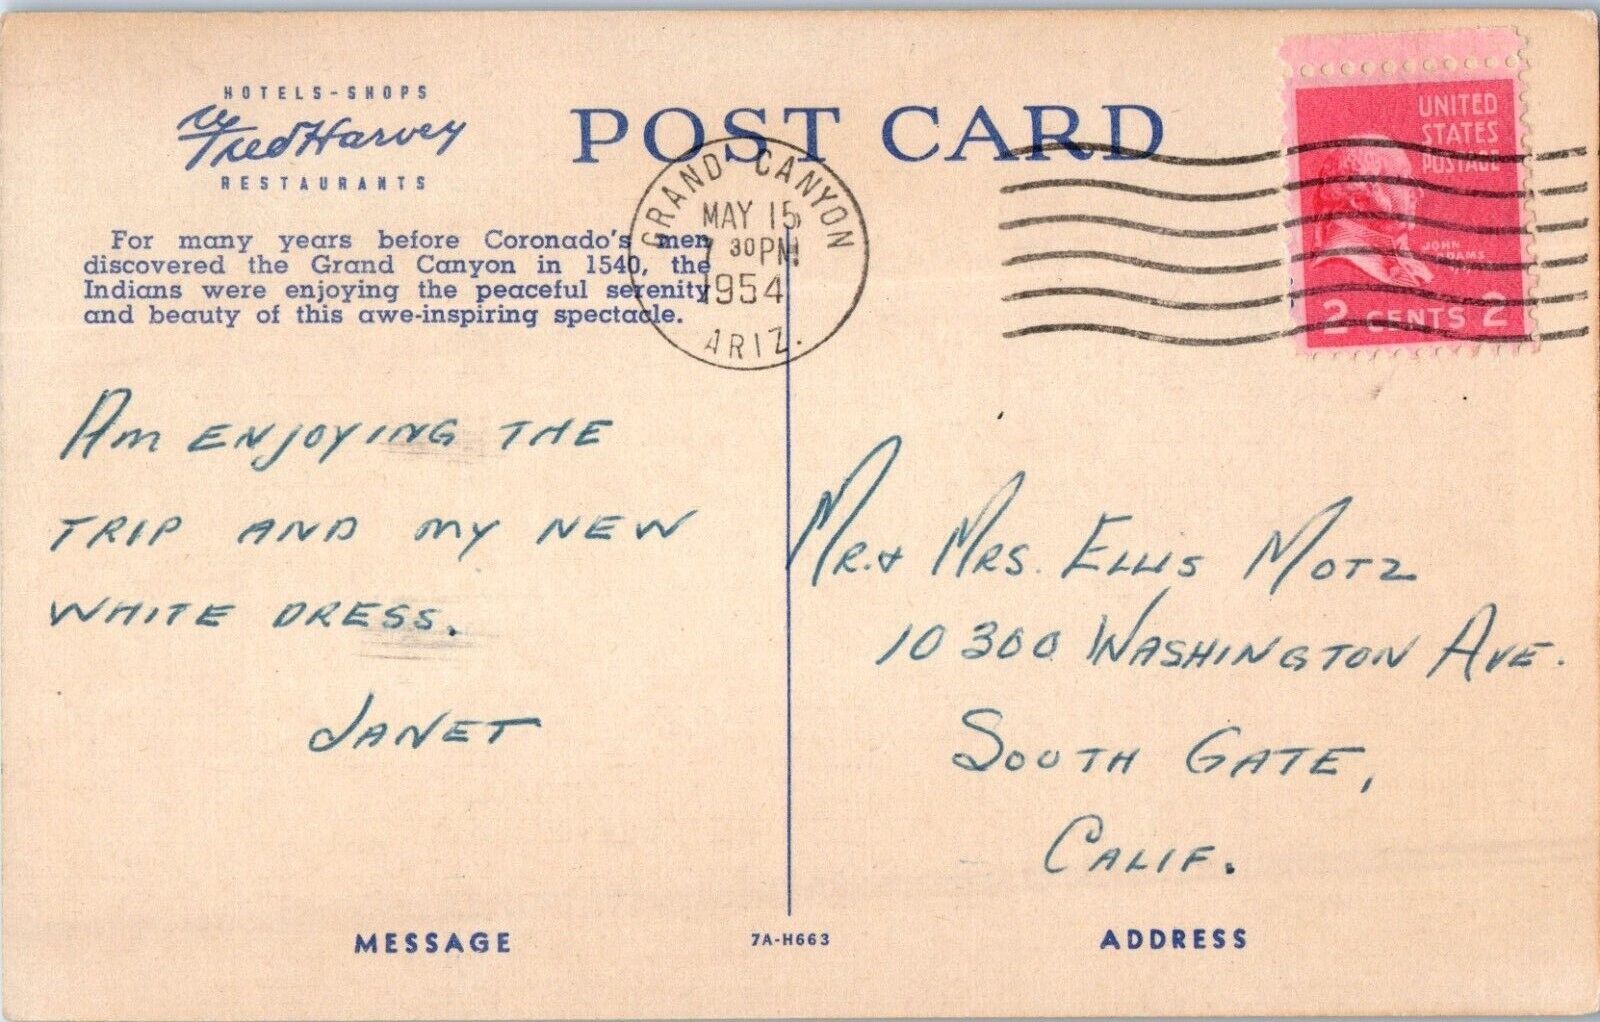 HOTELS-SHOPS
Fred Harvey
RESTAURANTS
POST CARD
For many years before Coronado's men
discovered the Grand Canyon in 1540, the
Indians were enjoying the peaceful serenity
and beauty of this awe-inspiring spectacle.
GRAND CANYON
MAY 15
7 30PM
1954
ARIZ.
UNITED
STATES
POSTAGE
JOHN
ADAMS
2 CENTS 2
AM ENJOYING THE
TRIP AND MY NEW
WHITE DRESS.
JANET
MR. & MRS. ELLIS MOTZ
10300 WASHINGTON AVE.
SOUTH GATE,
CALIF.
MESSAGE
7A-H663
ADDRESS